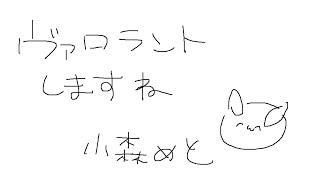 ヴァロラント
しますね
小森めと